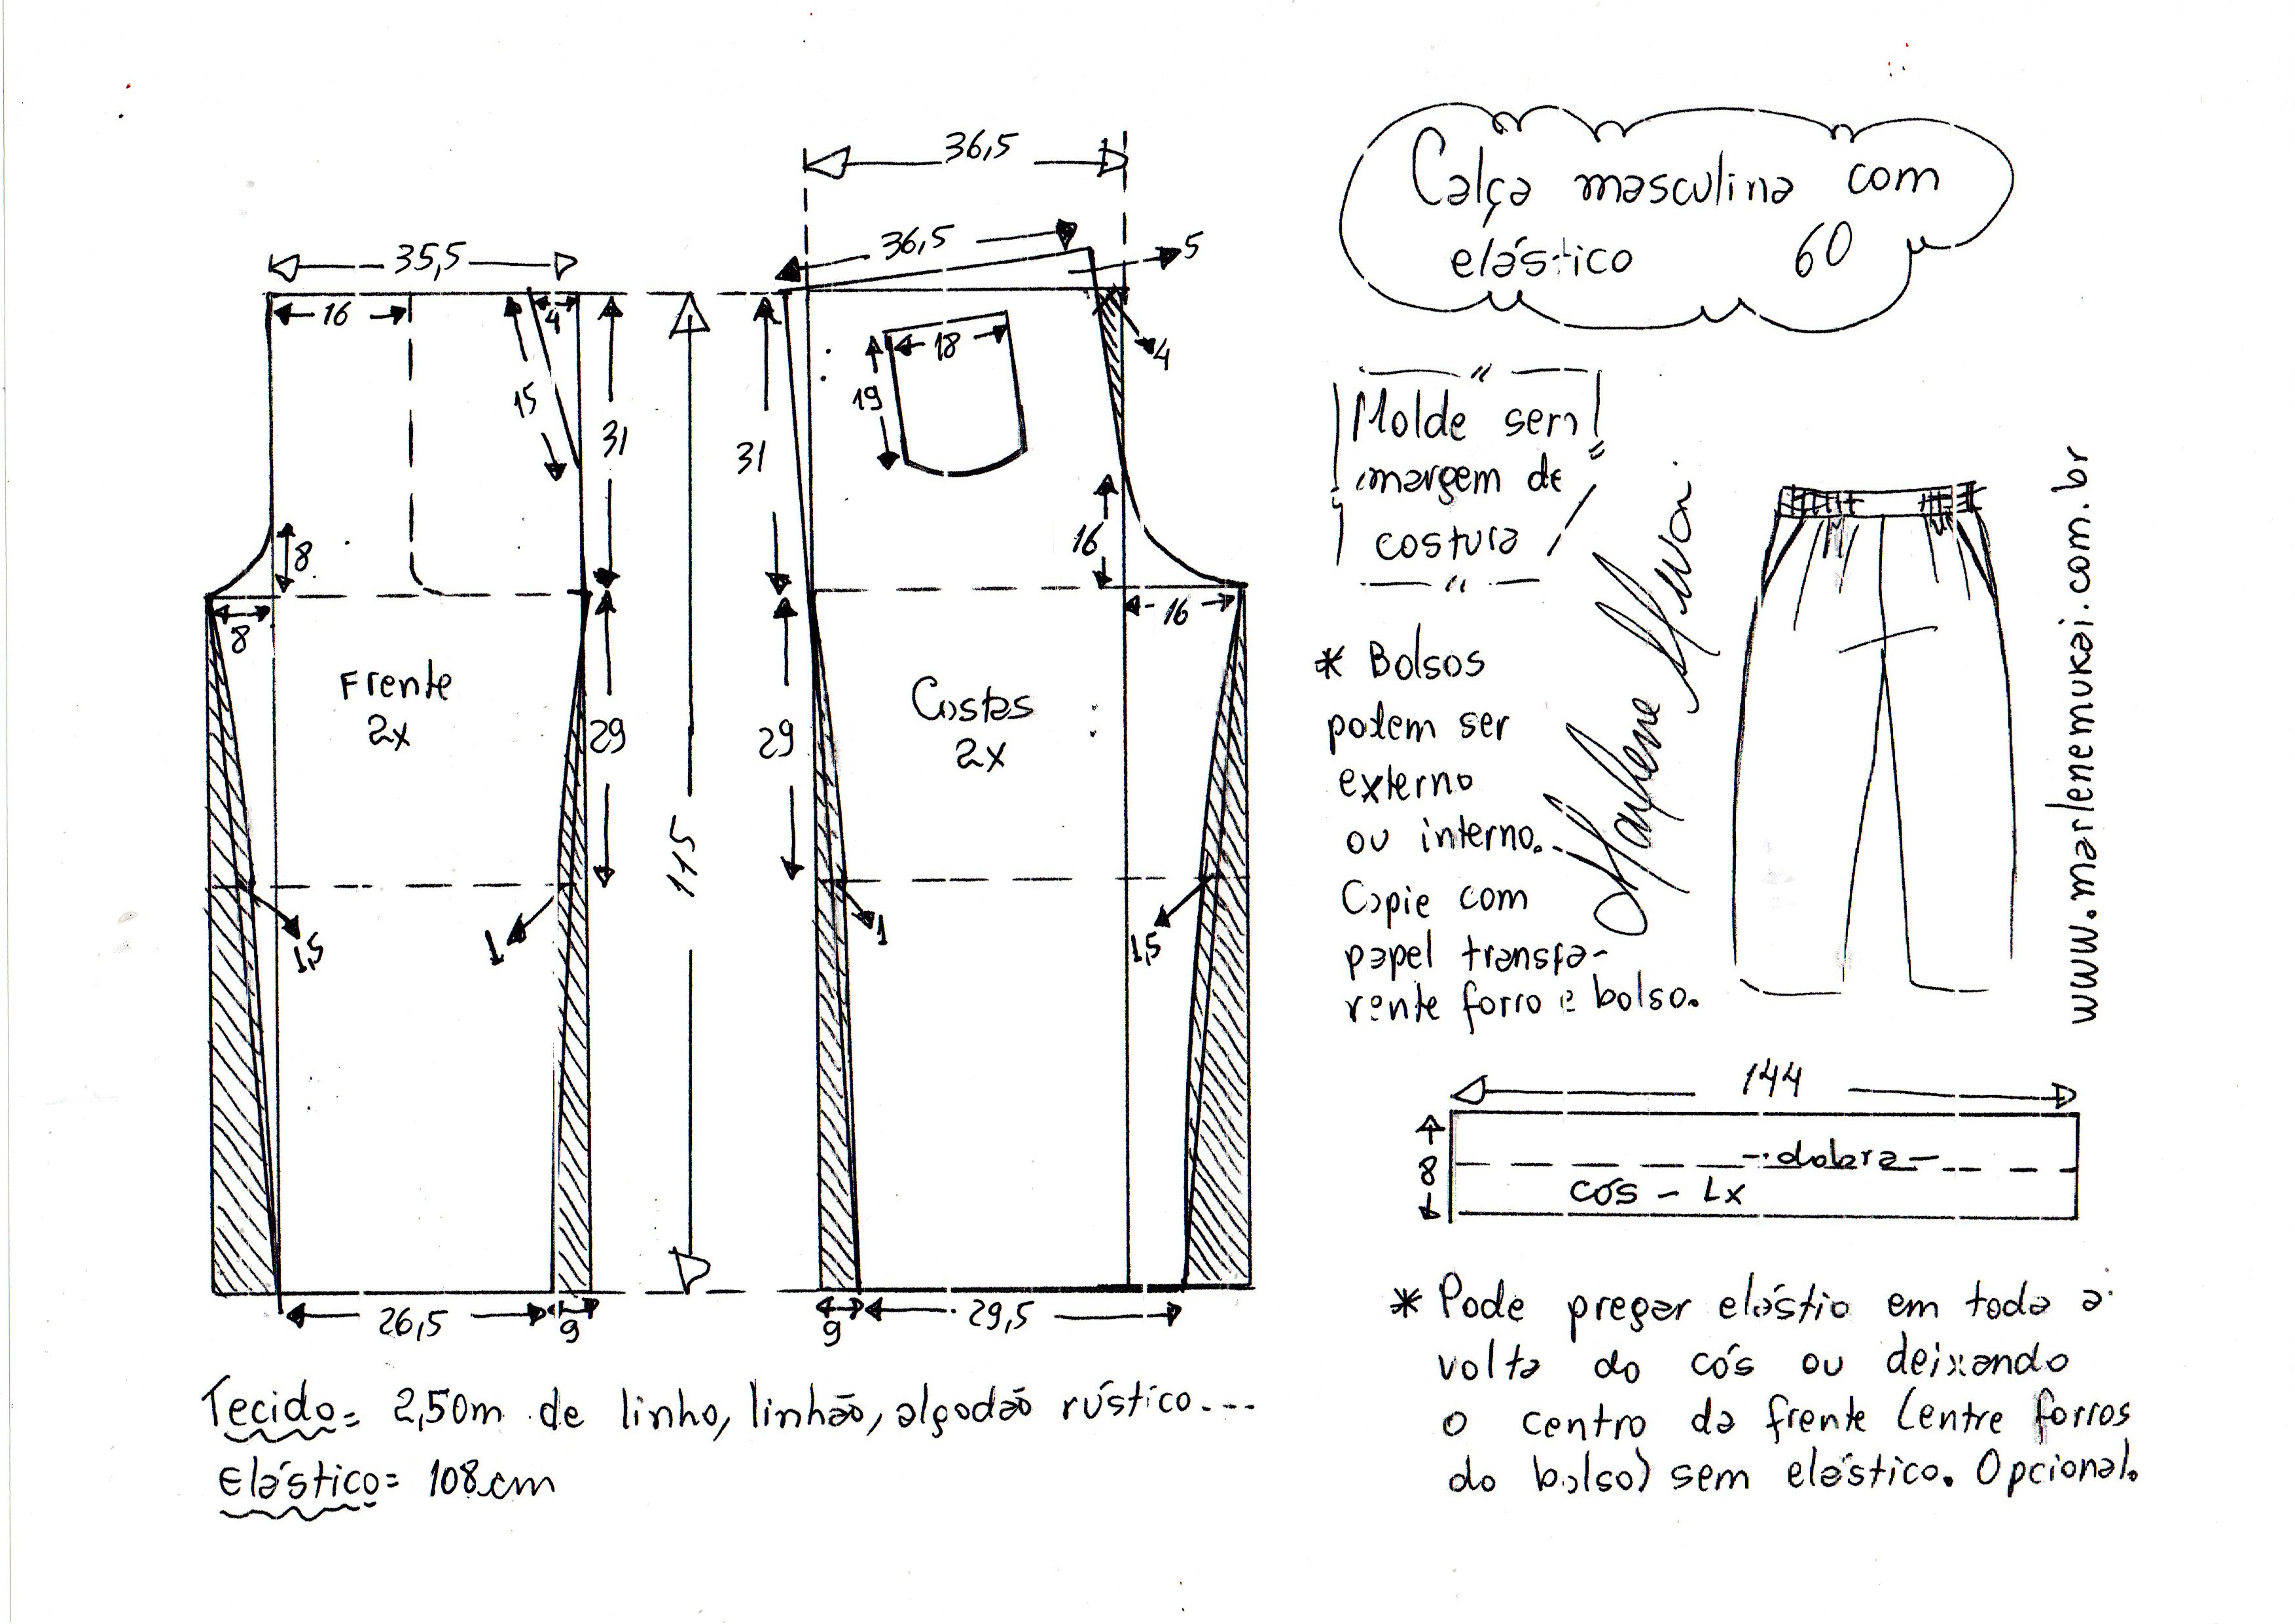 Calça masculina com
elástico 60
36,5
36,5
5
35,5
16
4
15
31
31
18
19
4
8
8
16
16
Frente
2x
Costas
2x
29
29
115
1,5
1
1
1,5
26,5
9
9
29,5
Molde sem
margem de
costura
* Bolsos
podem ser
externo
ou interno.
Copie com
papel transpa-
rente forro e bolso.
Marlene Mukai
www.marlenemukai.com.br
144
8
dobra
cós - 1x
Tecido= 2,50m de linho, linhão, algodão rústico...
Elástico= 108cm
* Pode pregar elástio em toda a
volta do cós ou deixando
o centro da frente (entre forros
do bolso) sem elástico. Opcional.